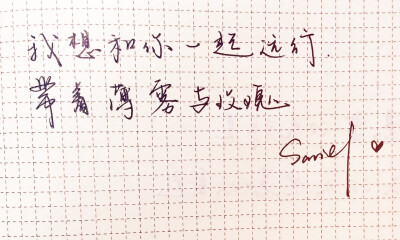 我想和你一起远行.
带着薄雾与玫瑰